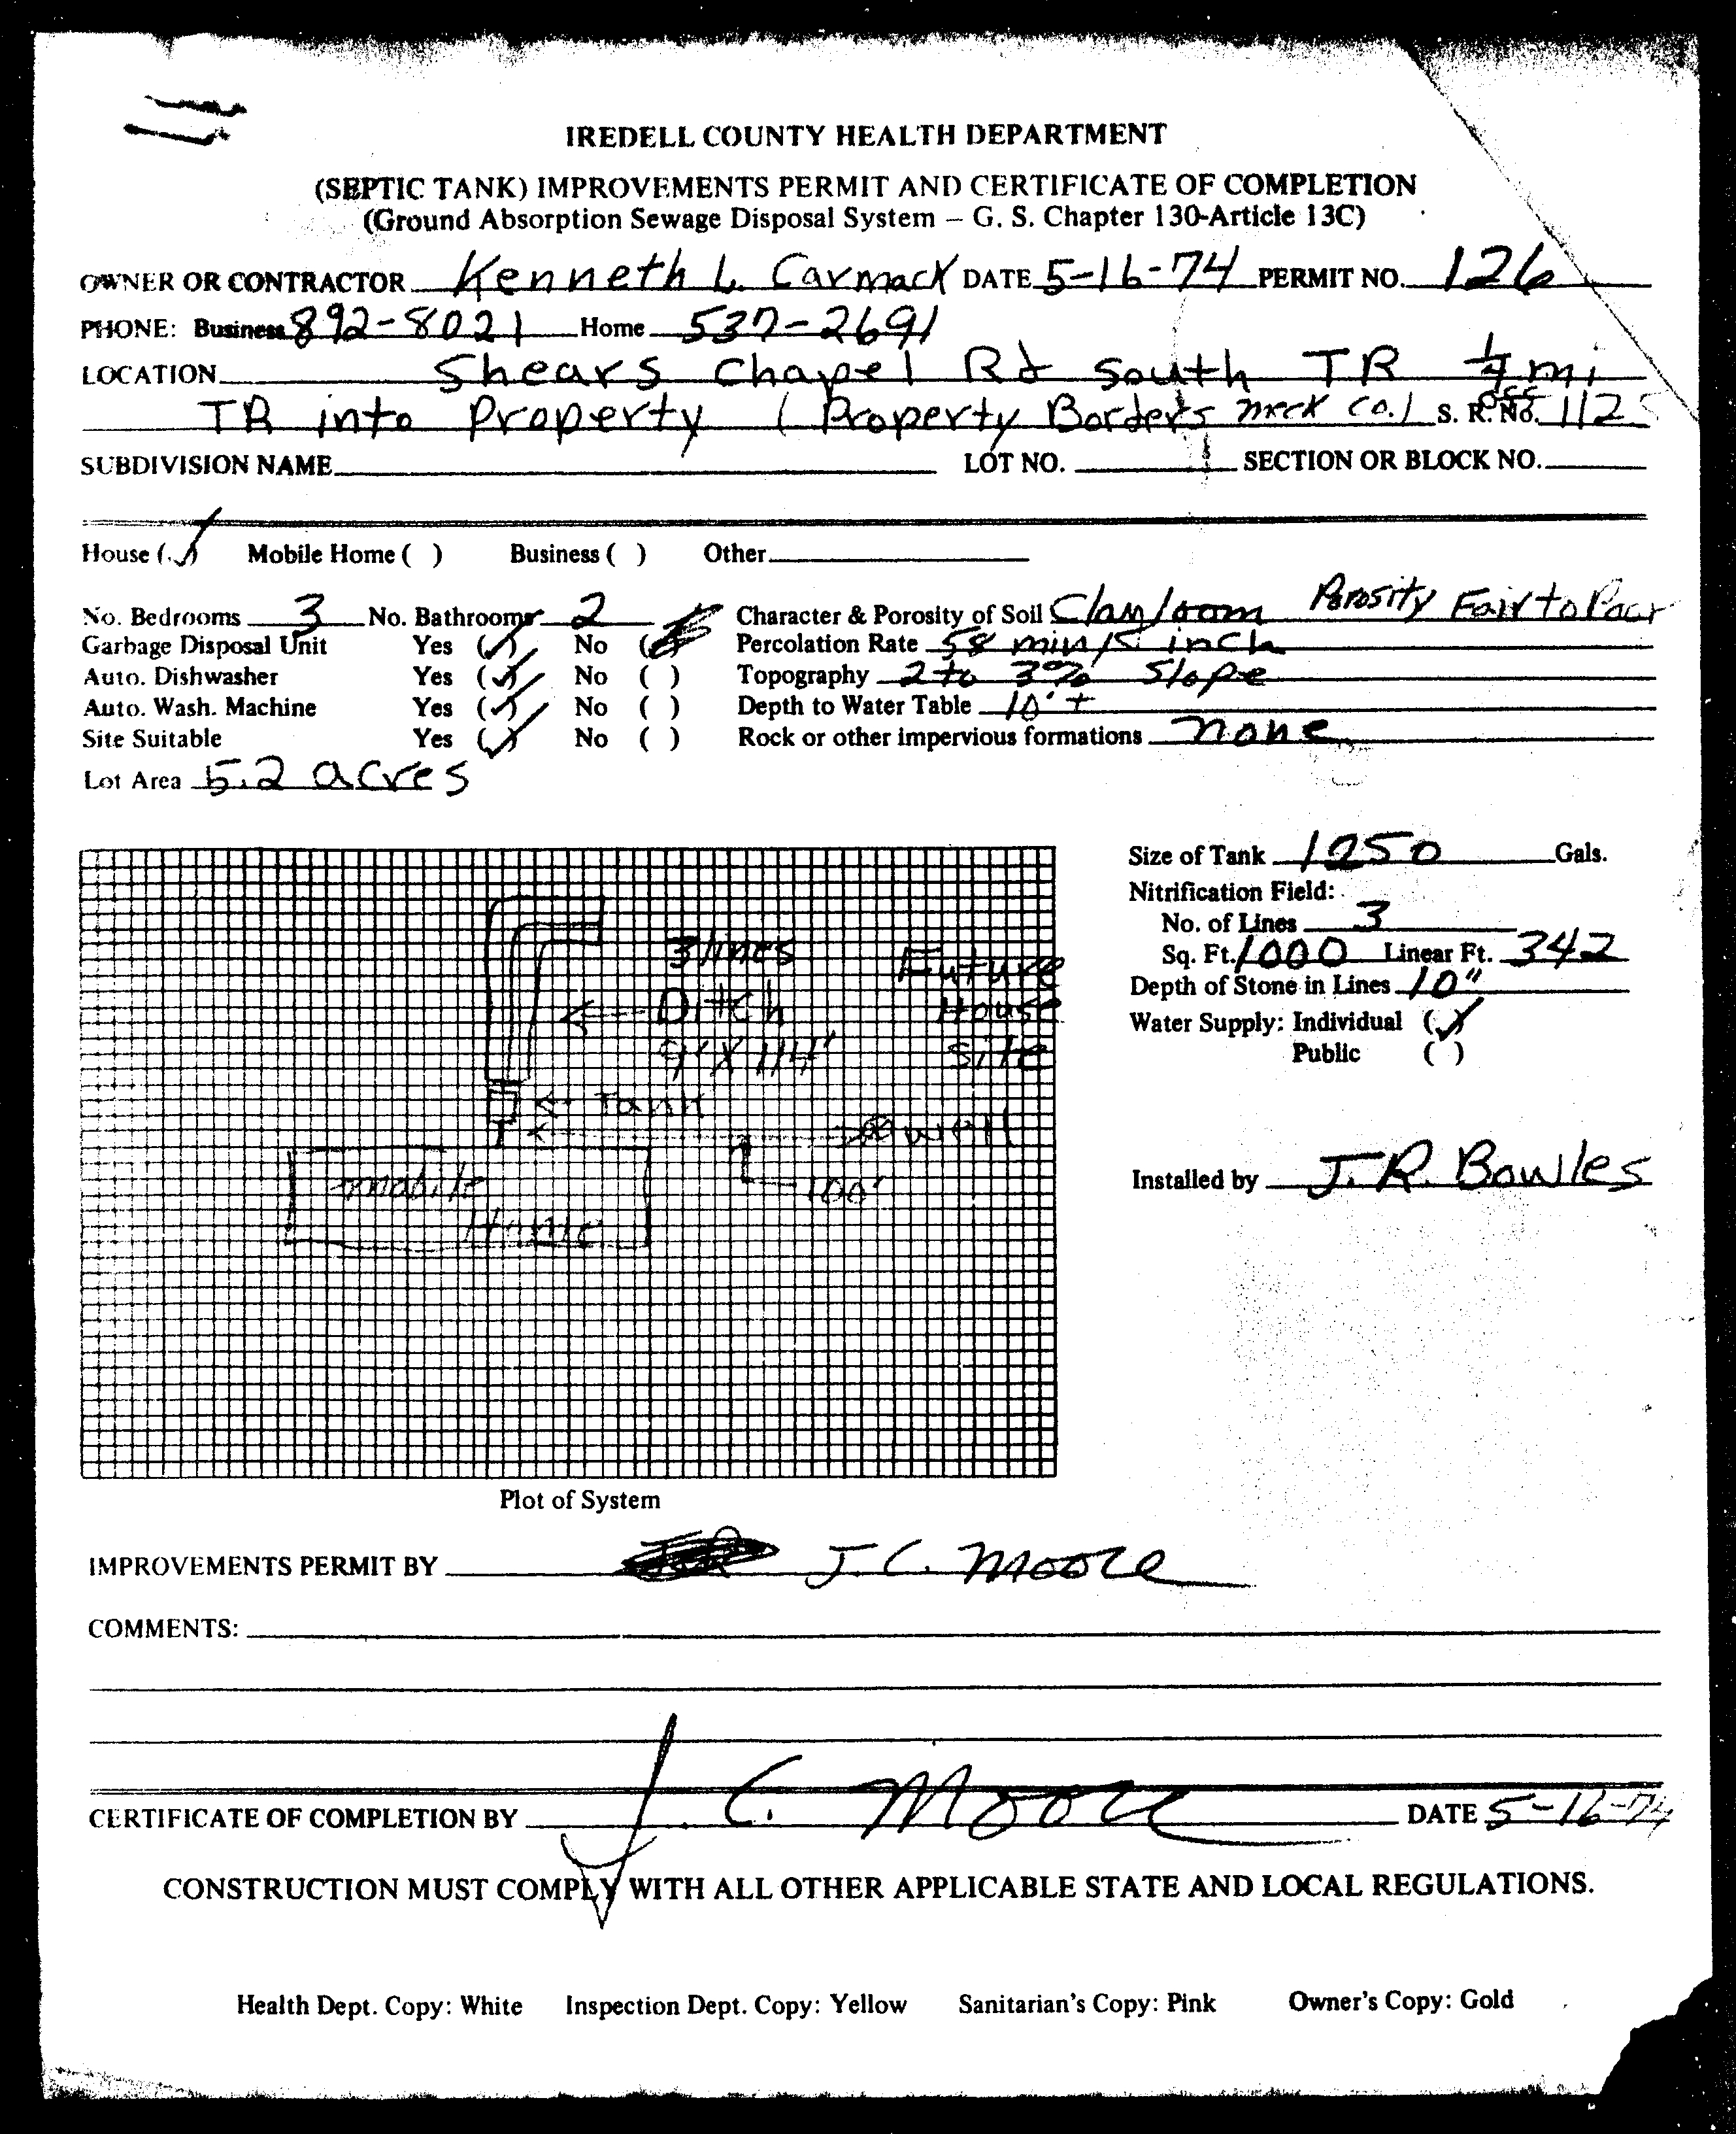 IREDELL COUNTY HEALTH DEPARTMENT
(SEPTIC TANK) IMPROVEMENTS PERMIT AND CERTIFICATE OF COMPLETION
(Ground Absorption Sewage Disposal System – G. S. Chapter 130-Article 13C)
OWNER OR CONTRACTOR Kenneth L. Carmack DATE 5-16-74 PERMIT NO. 126
PHONE: Business 892-8021 Home 537-2691
LOCATION Shears Chapel Rd South TR 1/4 mi
TR into Property (Property Borders Meck Co.) S. R. No. 1125
SUBDIVISION NAME LOT NO. SECTION OR BLOCK NO.
House (✓) Mobile Home ( ) Business ( ) Other
No. Bedrooms 3 No. Bathrooms 2 Character & Porosity of Soil Clay loam Porosity Fair to Poor
Garbage Disposal Unit Yes (✓) No ( ) Percolation Rate 58 min/ inch
Auto. Dishwasher Yes (✓) No ( ) Topography 2 to 3% Slope
Auto. Wash. Machine Yes (✓) No ( ) Depth to Water Table 10' +
Site Suitable Yes (✓) No ( ) Rock or other impervious formations none
Lot Area 5.2 acres
Size of Tank 1250 Gals.
Nitrification Field:
No. of Lines 3
Sq. Ft. 1000 Linear Ft. 342
Depth of Stone in Lines 10"
Water Supply: Individual (✓)
Public ( )
3 lines
Ditch
9' X 114'
Future
House
Site
← Tank
well
100'
mobile
Home
Installed by J.R. Bowles
Plot of System
IMPROVEMENTS PERMIT BY J.C. Moore
COMMENTS:
CERTIFICATE OF COMPLETION BY J. C. Moore DATE 5-16-74
CONSTRUCTION MUST COMPLY WITH ALL OTHER APPLICABLE STATE AND LOCAL REGULATIONS.
Health Dept. Copy: White Inspection Dept. Copy: Yellow Sanitarian's Copy: Pink Owner's Copy: Gold